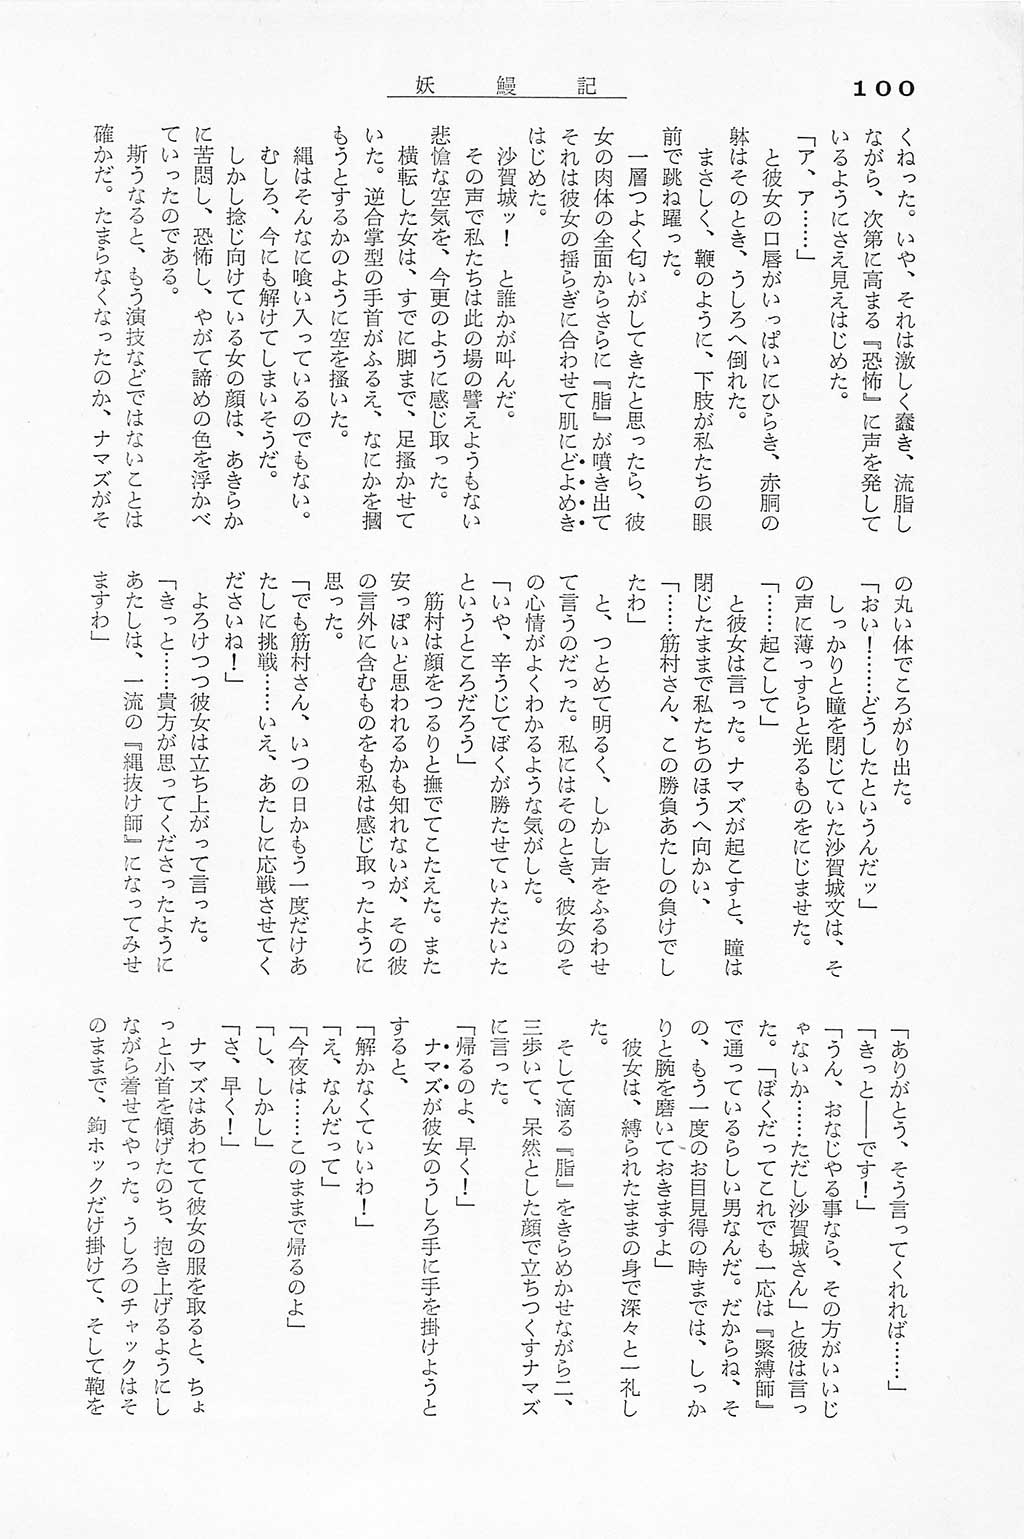 妖鰻記
100
くねった。いや、それは激しく蠢き、流脂し
ながら、次第に高まる『恐怖』に声を発して
いるようにさえ見えはじめた。
「ア、ア……」
と彼女の口唇がいっぱいにひらき、赤胴の
躰はそのとき、うしろへ倒れた。
まさしく、鞭のように、下肢が私たちの眼
前で跳ね躍った。
一層つよく匂いがしてきたと思ったら、彼
女の肉体の全面からさらに『脂』が噴き出て
それは彼女の揺らぎに合わせて肌にどよめき
はじめた。
沙賀城ッ！　と誰かが叫んだ。
その声で私たちは此の場の譬えようもない
悲愴な空気を、今更のように感じ取った。
横転した女は、すでに脚まで、足掻かせて
いた。逆合掌型の手首がふるえ、なにかを摑
もうとするかのように空を掻いた。
縄はそんなに喰い入っているのでもない。
むしろ、今にも解けてしまいそうだ。
しかし捻じ向けている女の顔は、あきらか
に苦悶し、恐怖し、やがて諦めの色を浮かべ
ていったのである。
斯うなると、もう演技などではないことは
確かだ。たまらなくなったのか、ナマズがそ
の丸い体でころがり出た。
「おい！……どうしたというんだッ」
しっかりと瞳を閉じていた沙賀城文は、そ
の声に薄っすらと光るものをにじませた。
「……起こして」
と彼女は言った。ナマズが起こすと、瞳は
閉じたままで私たちのほうへ向かい、
「……筋村さん、この勝負あたしの負けでし
たわ」
と、つとめて明るく、しかし声をふるわせ
て言うのだった。私にはそのとき、彼女のそ
の心情がよくわかるような気がした。
「いや、辛うじてぼくが勝たせていただいた
というところだろう」
筋村は顔をつるりと撫でてこたえた。また
安っぽいと思われるかも知れないが、その彼
の言外に含むものをも私は感じ取ったように
思った。
「でも筋村さん、いつの日かもう一度だけあ
たしに挑戦……いえ、あたしに応戦させてく
ださいね！」
よろけつつ彼女は立ち上がって言った。
「きっと……貴方が思ってくださったように
あたしは、一流の『縄抜け師』になってみせ
ますわ」
「ありがとう、そう言ってくれれば……」
「きっと――です！」
「うん、おなじやる事なら、その方がいいじ
ゃないか……ただし沙賀城さん」と彼は言っ
た。「ぼくだってこれでも一応は『緊縛師』
で通っているらしい男なんだ。だからね、そ
の、もう一度のお目見得の時までは、しっか
りと腕を磨いておきますよ」
彼女は、縛られたままの身で深々と一礼し
た。
そして滴る『脂』をきらめかせながら二、
三歩いて、呆然とした顔で立ちつくすナマズ
に言った。
「帰るのよ、早く！」
ナマズが彼女のうしろ手に手を掛けようと
すると、
「解かなくていいわ！」
「え、なんだって」
「今夜は……このままで帰るのよ」
「し、しかし」
「さ、早く！」
ナマズはあわてて彼女の服を取ると、ちょ
っと小首を傾げたのち、抱き上げるようにし
ながら着せてやった。うしろのチャックはそ
のままで、鉤ホックだけ掛けて、そして鞄を